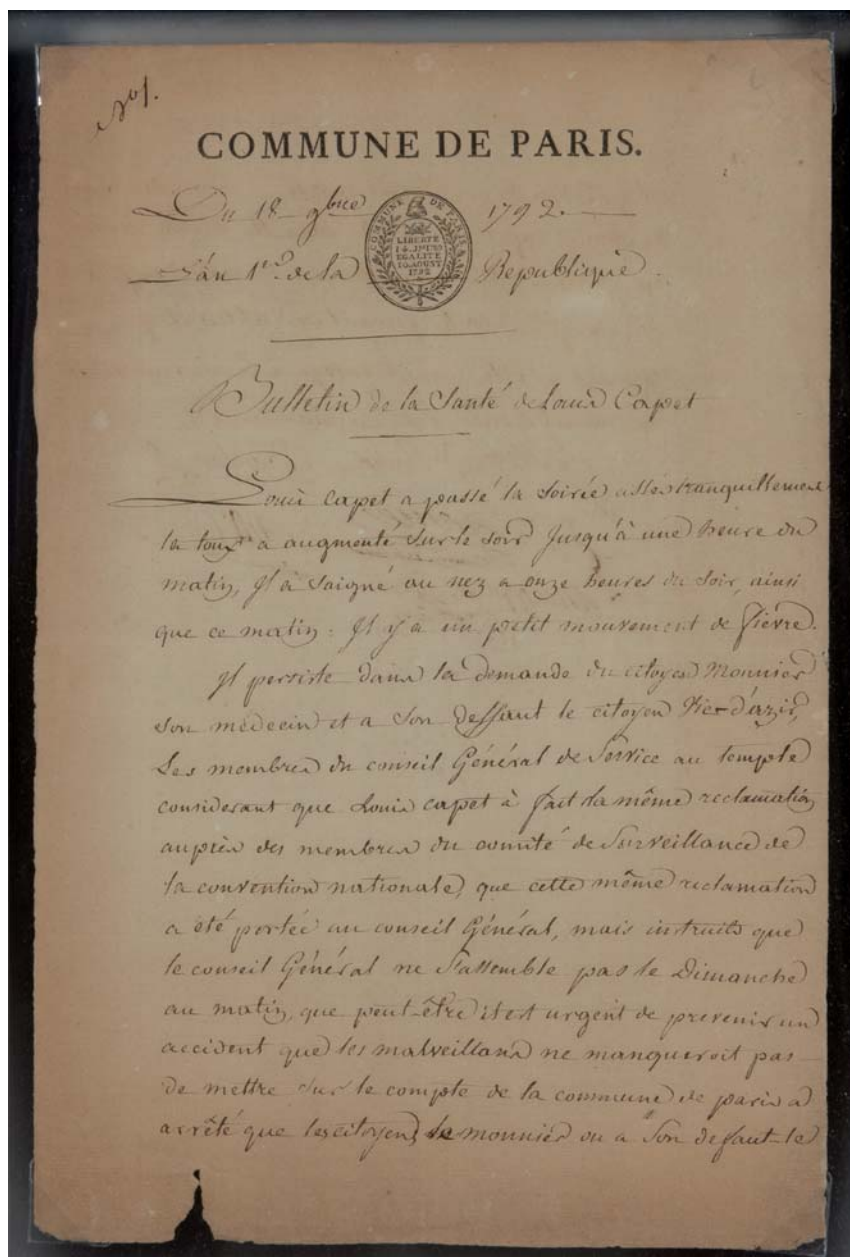 COMMUNE DE PARIS.
Du 18 9bre 1792.
COMMUNE DE PARIS
LIBERTÉ
14 JUILLET
EGALITÉ
10 AOUST
1792
L'án 1er de la République.
Bulletin de la Santé de Louis Capet
Louis Capet a passé la soirée assés tranquillement
la toux a augmenté sur le soir jusqu'à une heure du
matin, Il a saigné au nez a onze heures du soir, ainsi
que ce matin : Il y a un petit mouvement de fièvre.
Il persiste dans la demande du citoyen Monnier
son médecin et a son deffaut le citoyen Vic-d'azir,
Les membres du conseil Général de service au temple
considerant que Louis capet à fait la même reclamation
auprès des membres du comité de Surveillance de
la convention nationale, que cette même reclamation
a été portée au conseil Général, mais instruits que
le conseil Général ne s'assemble pas le Dimanche
au matin, que peut-être il est urgent de prevenir un
accident que les malveillans ne manqueroit pas
de mettre sur le compte de la commune de paris a
arrêté que les citoyens le monnier ou a son defaut le